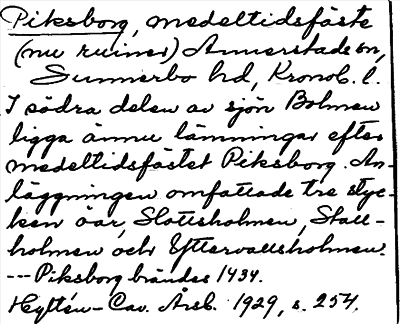 Piksborg, medeltidsfäste
(nu ruiner) Annerstads sn,
Sunnerbo hd, Kronob. l.
I södra delen av sjön Bolmen
ligga ännu lämningar efter
medeltidsfästet Piksborg. An-
läggningen omfattade tre styc-
ken öar, Slottsholmen, Stall-
holmen och Yttervallsholmen.
--- Piksborg brändes 1434.
Hyltén-Cav. Årsb. 1929, s. 254.